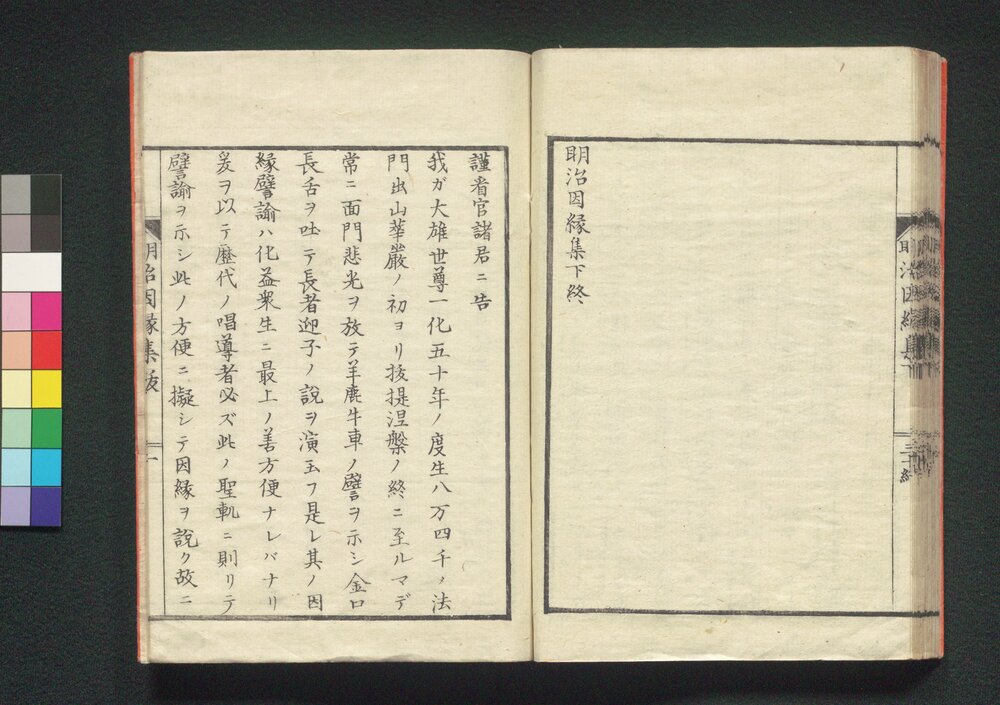 明治因縁集下終
謹看官諸君ニ告
我ガ大雄世尊一化五十年ノ度生八万四千ノ法
門出山華嚴ノ初ヨリ抜提涅槃ノ終ニ至ルマデ
常ニ面門悲光ヲ放テ羊鹿牛車ノ譬ヲ示シ金口
長舌ヲ吐テ長者迎子ノ說ヲ演玉フ是レ其ノ因
縁譬諭ハ化益衆生ニ最上ノ善方便ナレバナリ
爰ヲ以テ歴代ノ唱導者必ズ此ノ聖軌ニ則リテ
譬諭ヲ示シ此ノ方便ニ擬シテ因縁ヲ說ク故ニ
明治因縁集跋
一